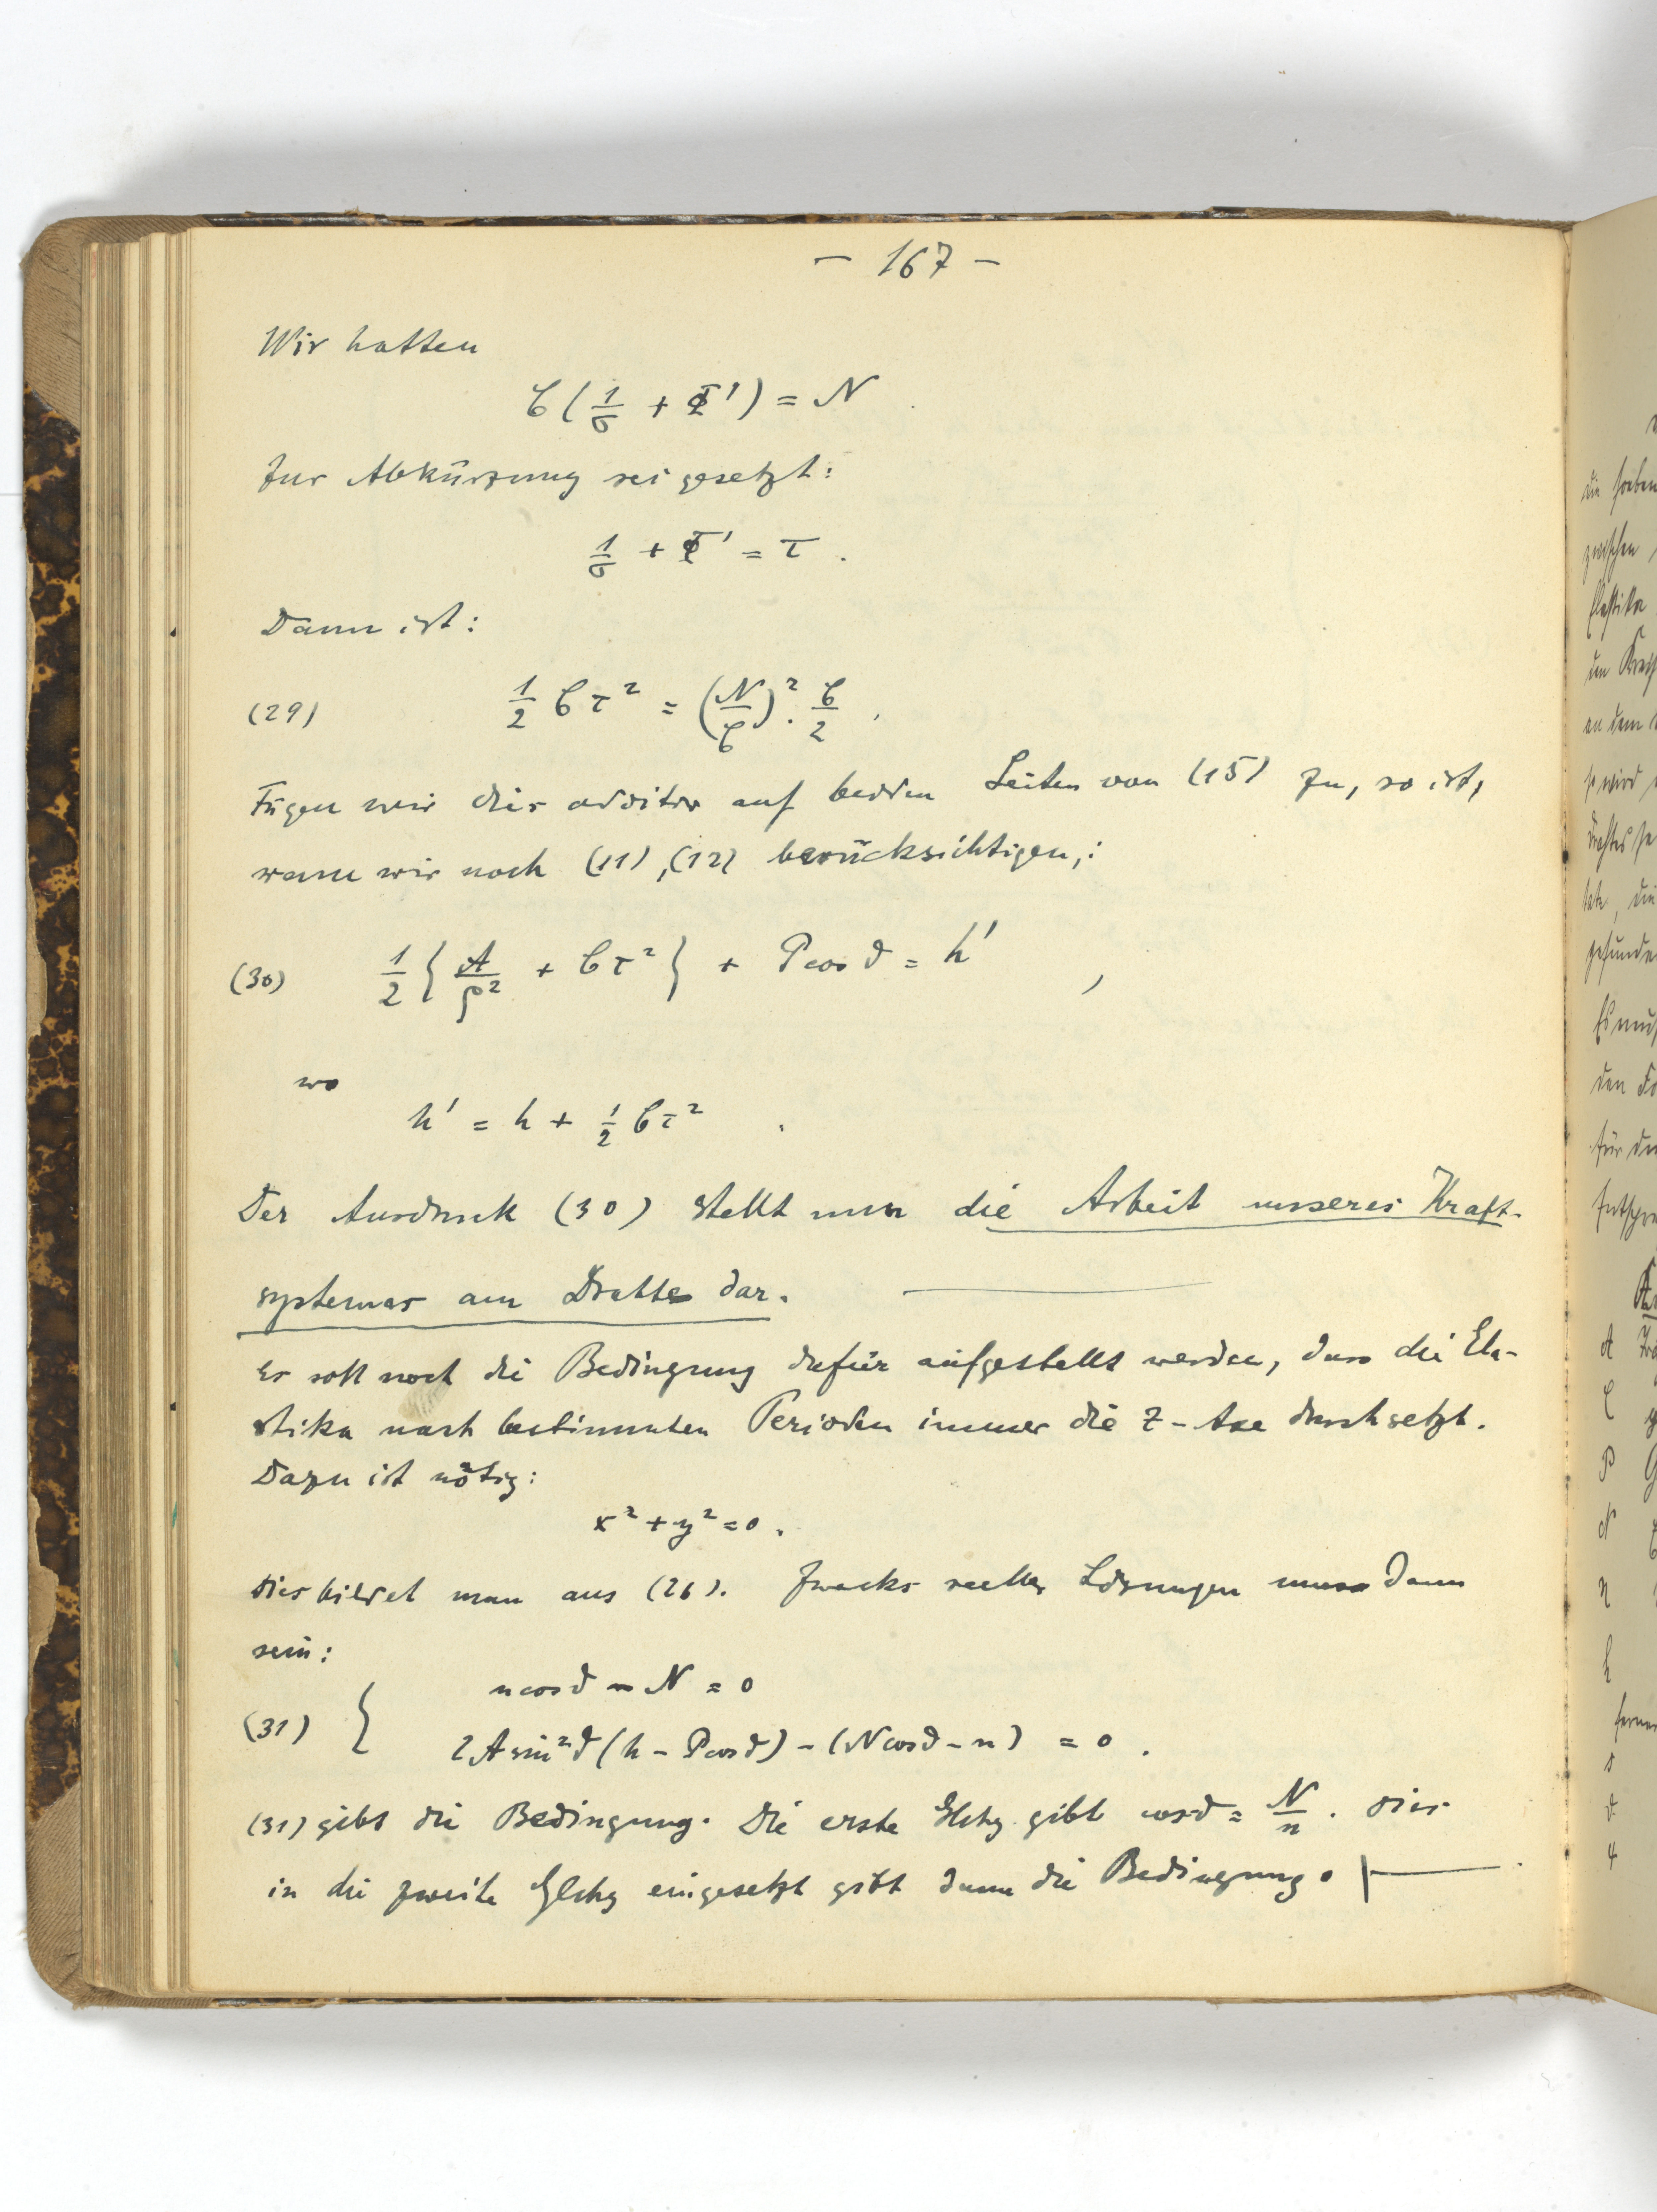 - 167 -
Wir hatten
C(1/σ + Φ') = N
Zur Abkürzung sei gesetzt:
1/σ + Φ' = τ .
Dann ist:
(29) 1/2 C τ² = (N/C)² · C/2 ,
Fügen wir dies additiv auf beiden Seiten von (15) zu, so ist,
wenn wir noch (11), (12) berücksichtigen,:
(30) 1/2 { A/ρ² + Cτ² } + P cos ϑ = h' ,
wo
h' = h + 1/2 Cτ² .
Der Ausdruck (30) stellt nun die Arbeit unseres Kraft-
systemes am Drahte dar.
Es soll noch die Bedingung dafür aufgestellt werden, dass die Ela-
stika nach bestimmten Perioden immer die Z-Axe durchsetzt.
Dazu ist nötig:
x² + y² = 0 .
Dies bildet man aus (26). Zwecks reeller Lösungen muss dann
sein:
(31) { n cos ϑ - N = 0
2A sin²ϑ (h - P cos ϑ) - (N cos ϑ - n) = 0 .
(31) gibt die Bedingung. Die erste Glchg. gibt cos ϑ = N/n . Dies
in die zweite Glchg eingesetzt gibt dann die Bedingung.
die soeben
zwischen
Elastika
an dem
so wird
für
A
C
P
N
n
h
ferner
s
ϑ